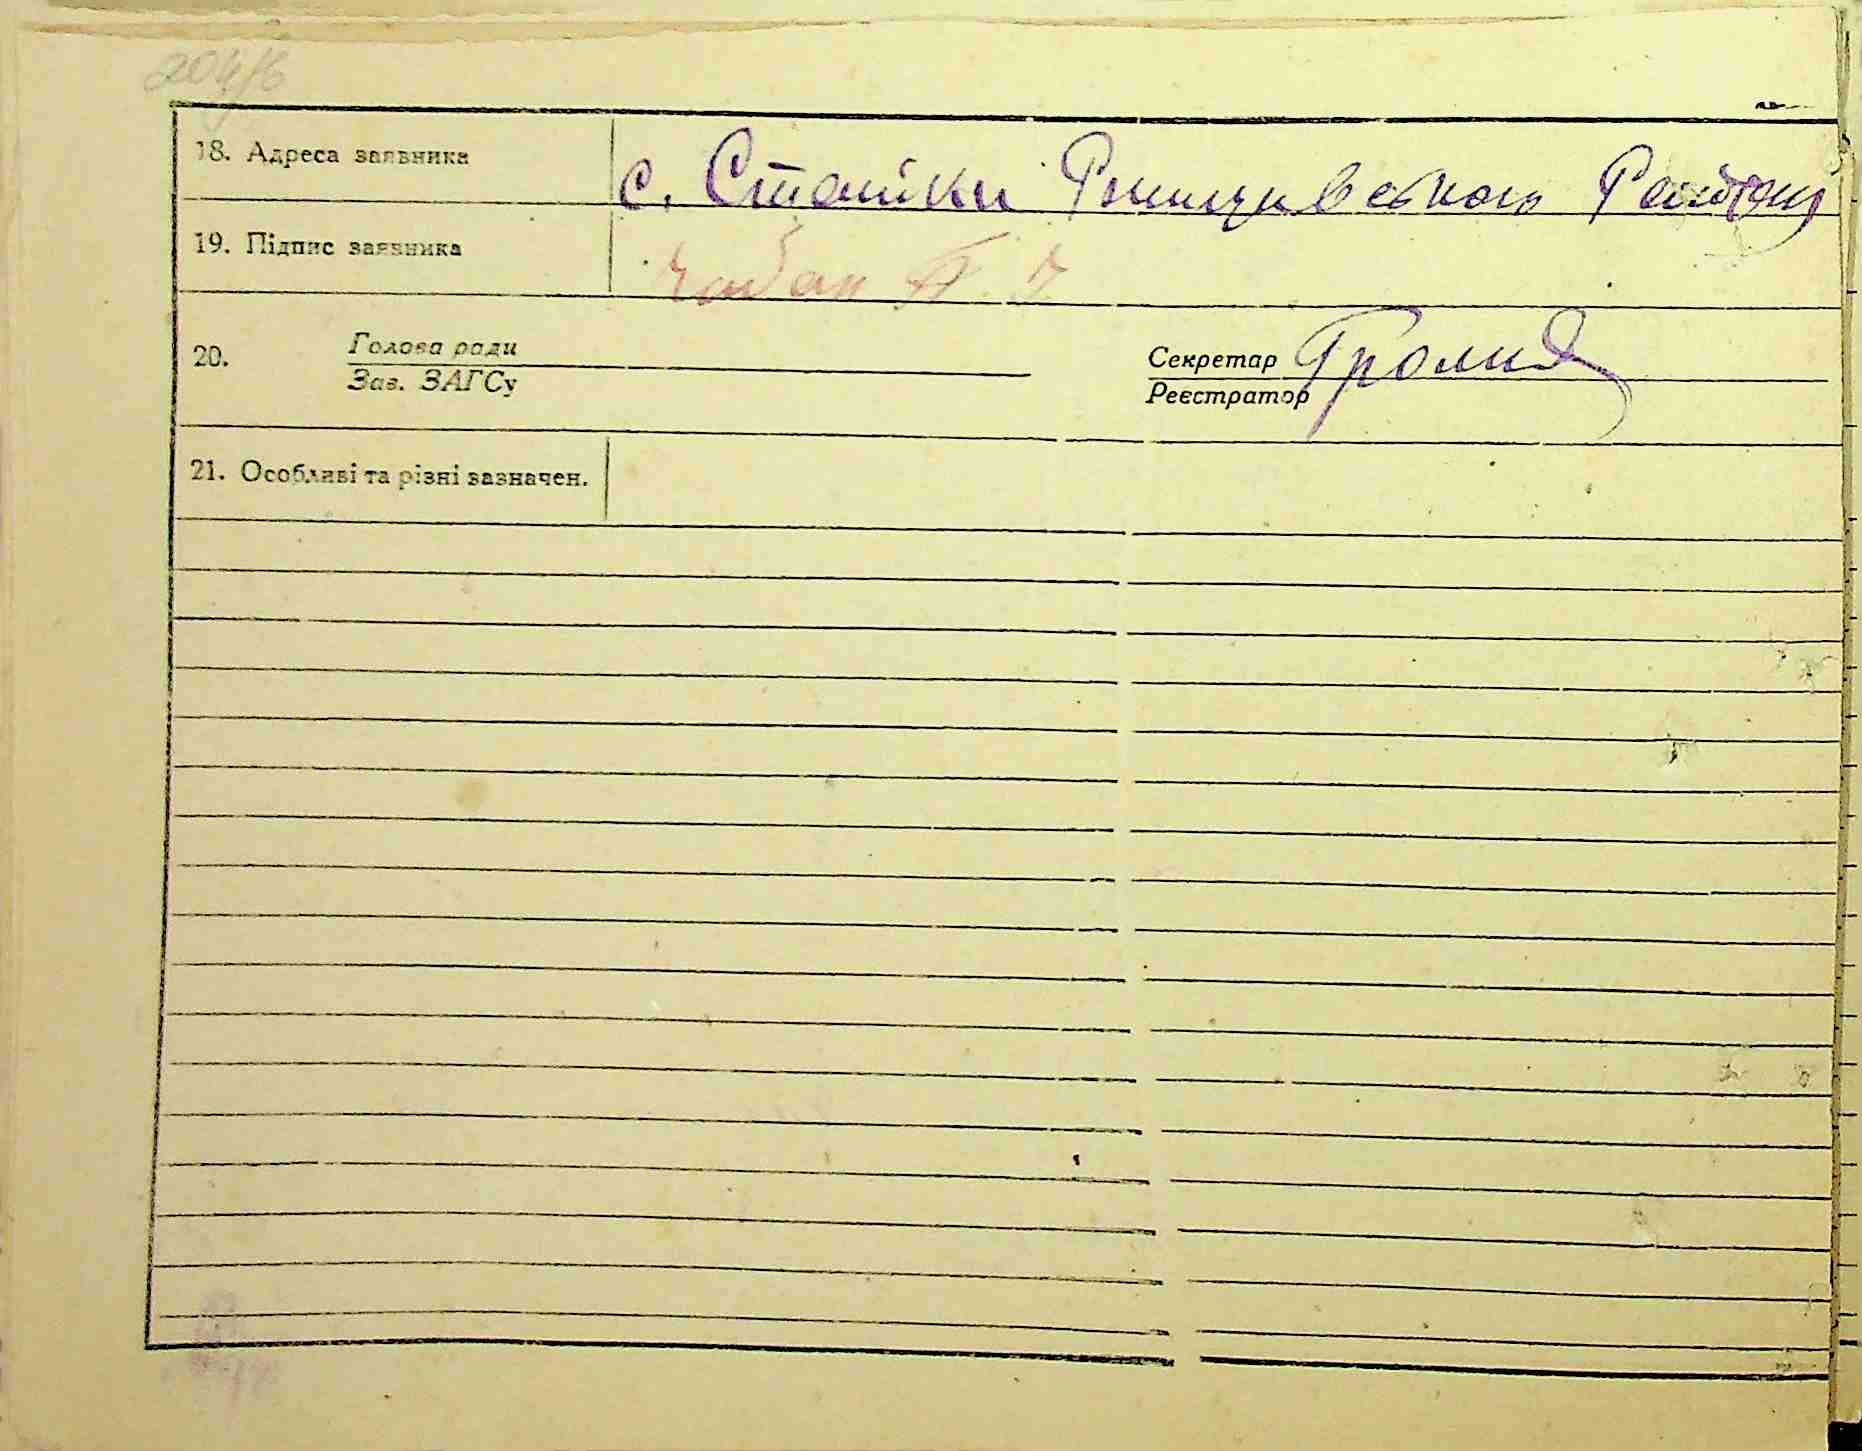 204/б
18. Адреса заявника с. Стайки Ржищивського Району
19. Підпис заявника Чабан П. І
20. Голова ради Секретар Громия
Зав. ЗАГСу Реєстратор
21. Особливі та різні зазначен.